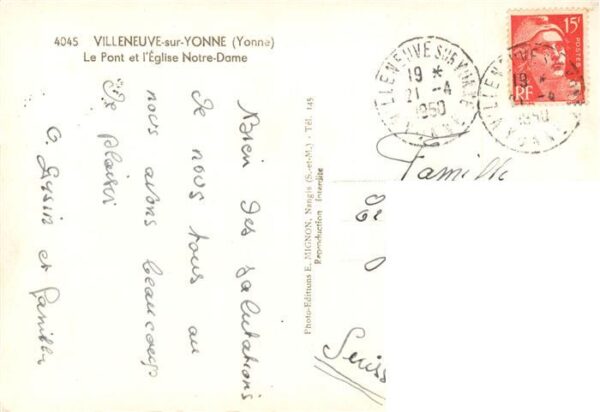 4045 VILLENEUVE-sur-YONNE (Yonne)
Le Pont et l'Église Notre-Dame
Bien des salutations
de nous tous au
nous avons beaucoup
de plaisir
G. Gysin et famille
Photo-Editions E. MIGNON, Nangis (S.-et-M.) - Tél. 145
Reproduction Interdite
VILLENEUVE SUR YONNE
19 *
21 -4
1950
YONNE
VILLENEUVE
19 *
21 -4
1950
YONNE
15F
POSTES
RF
Famille
Suiss